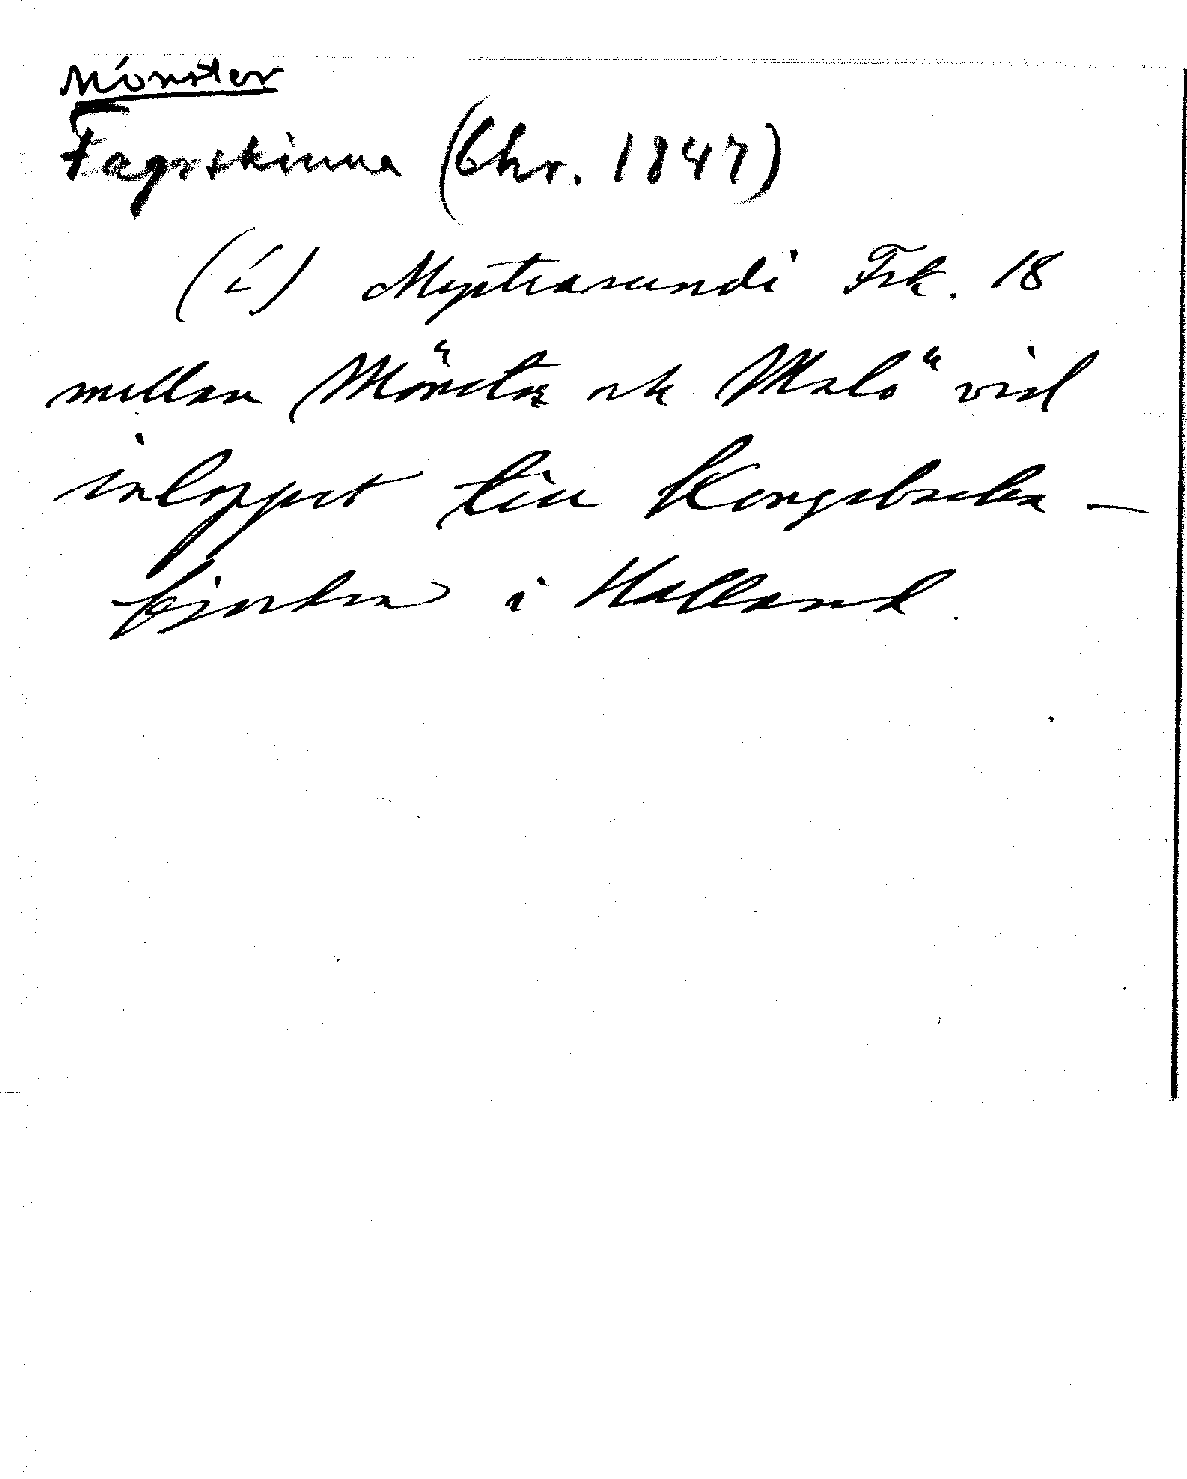 Mönster
Fagrskinna (Chr. 1847)
(í) Mystrasundi Frk. 18
mellan Mönster ok Malö vid
inloppet till Kongsbacka –
fjorden i Halland.